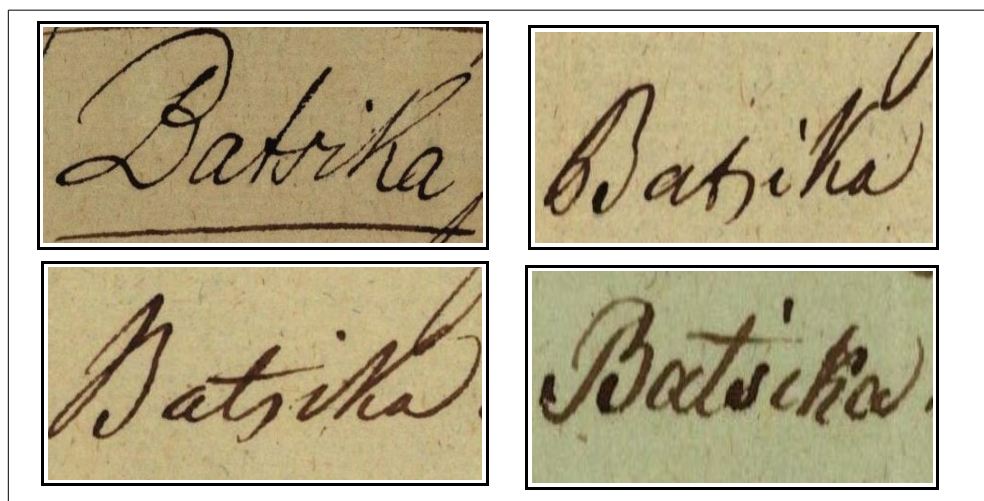 Batsika
Batsika
Batsika
Batsika